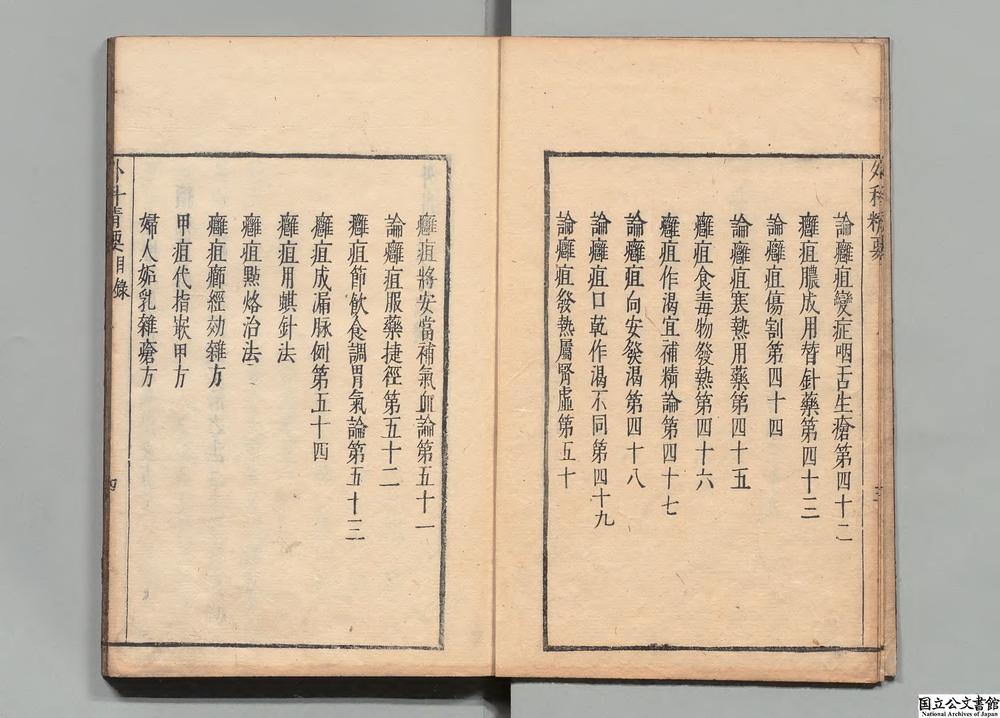 外科精要
論癰疽變症咽舌生瘡第四十二
癰疽膿成用替針藥第四十三
論癰疽傷割第四十四
論癰疽寒熱用藥第四十五
癰疽食毒物發熱第四十六
癰疽作渴宜補精論第四十七
論癰疽向安發渴第四十八
論癰疽口乾作渴不同第四十九
論癰疽發熱屬腎虛第五十
癰疽將安當補氣血論第五十一
論癰疽服藥捷徑第五十二
癰疽節飲食調胃氣論第五十三
癰疽成漏脉例第五十四
癰疽用蜞針法
癰疽點烙治法
癰疽癤經効雜方
甲疽代指嵌甲方
婦人妬乳雜瘡方
外科精要目錄
四
国立公文書館
National Archives of Japan